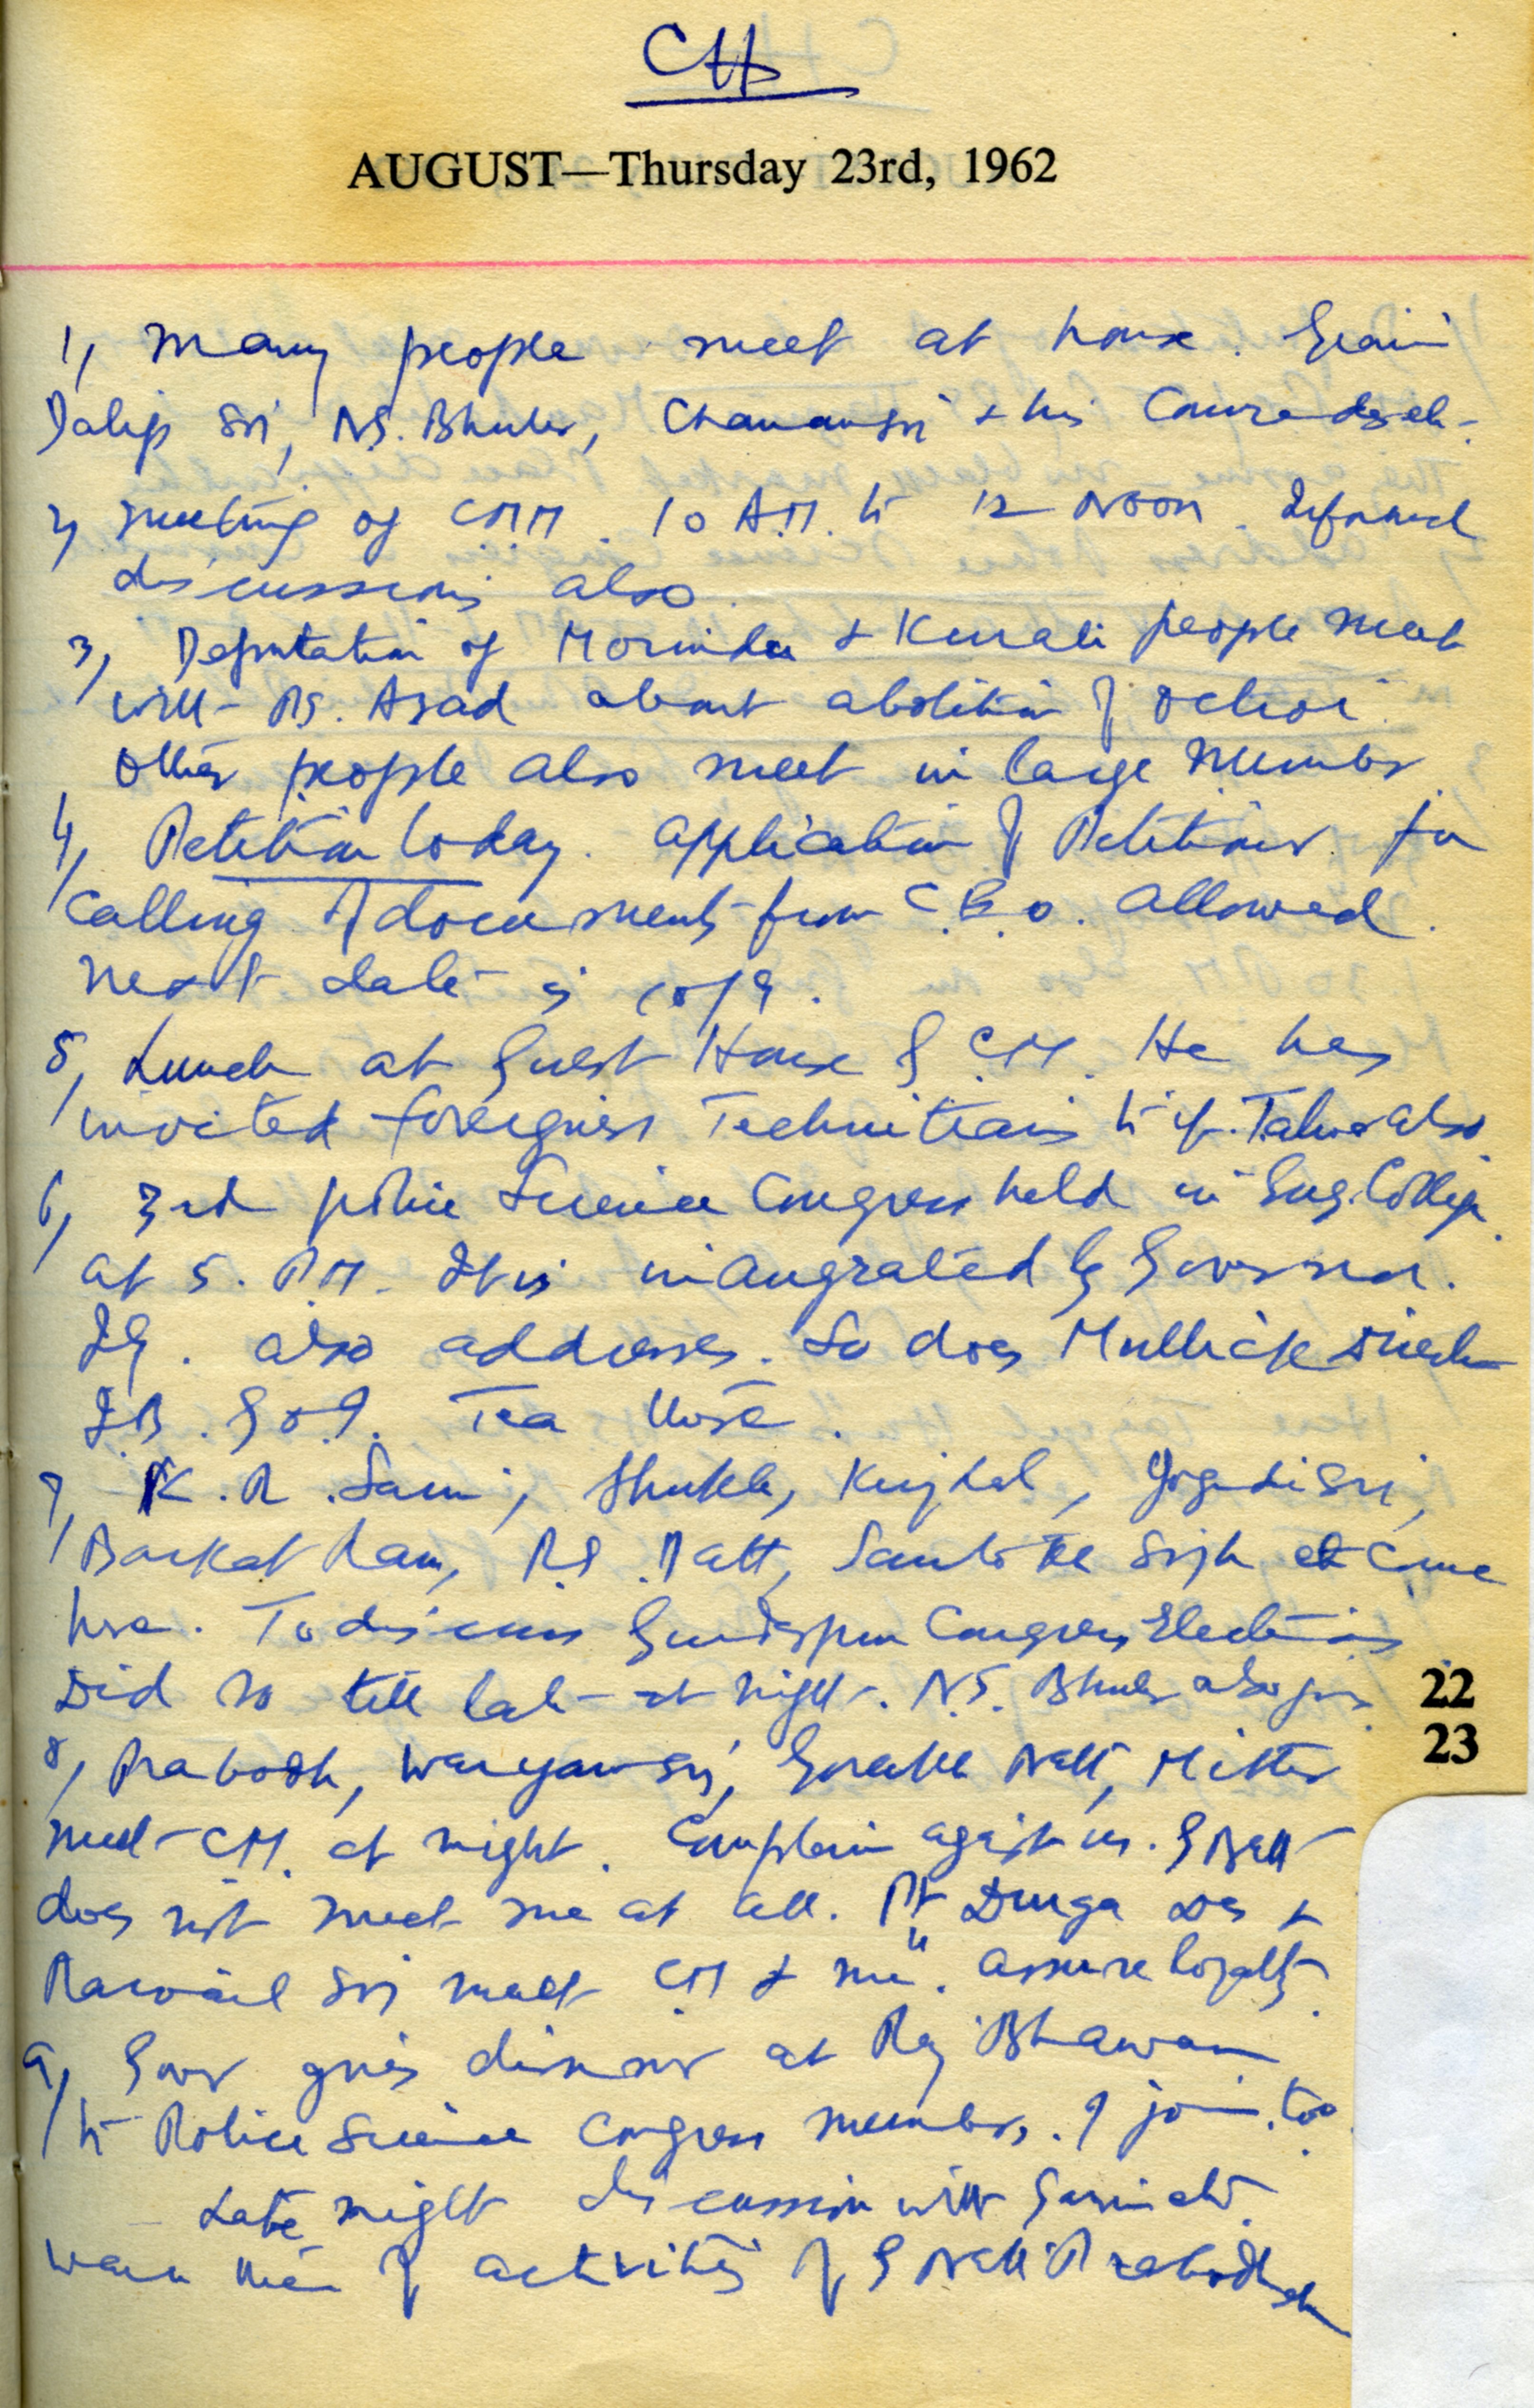 CH
AUGUST—Thursday 23rd, 1962
1, Many people meet at house. Giani
Dalip Sri, NS. Bhuler, Chanan Sri & his Comrades etc.
2, Meeting of CMM. 10 A.M. to 12 NOON. Informal
discussions also.
3, Deputation of Morinda & Kurali people meet
with PS. Azad about abolition of octroi.
Other people also meet in large number.
4, Petition today. Application of Petitioner for
Calling of documents from C.E.O. allowed.
Next date is 10/9.
5, Lunch at Guest House of C.M. He has
invited foreigners Technitians to it. also
6, 3rd police Science Congress held in Eng. College
at 5. P.M. It is inaugrated by Governor.
IG. also addresses. So does Mullick Director
I.B. G of I. Tea there.
7, K.R. Saini, Shukla, Yogendi Sri,
Barkat Ram, P.S. Datt, Santokh Singh etc come
here. To discuss Gurdaspur Congress Elections
Did so till late at night. N.S. Bhuler also joins
22
23
8, Prabodh, Waryam Sri, Gorakh Nath, Mitter
meet CM. at night. Complain against us. G Nath
does not meet me at all. Pt Durga Das &
Rawail Sri meet CM & me. assure loyalty.
9, Govr gives dinner at Raj Bhawan
to Police Science Congress members. I join too.
Late night discussion with Saini etc.
Warn them of activities of G Nath Prabodh etc